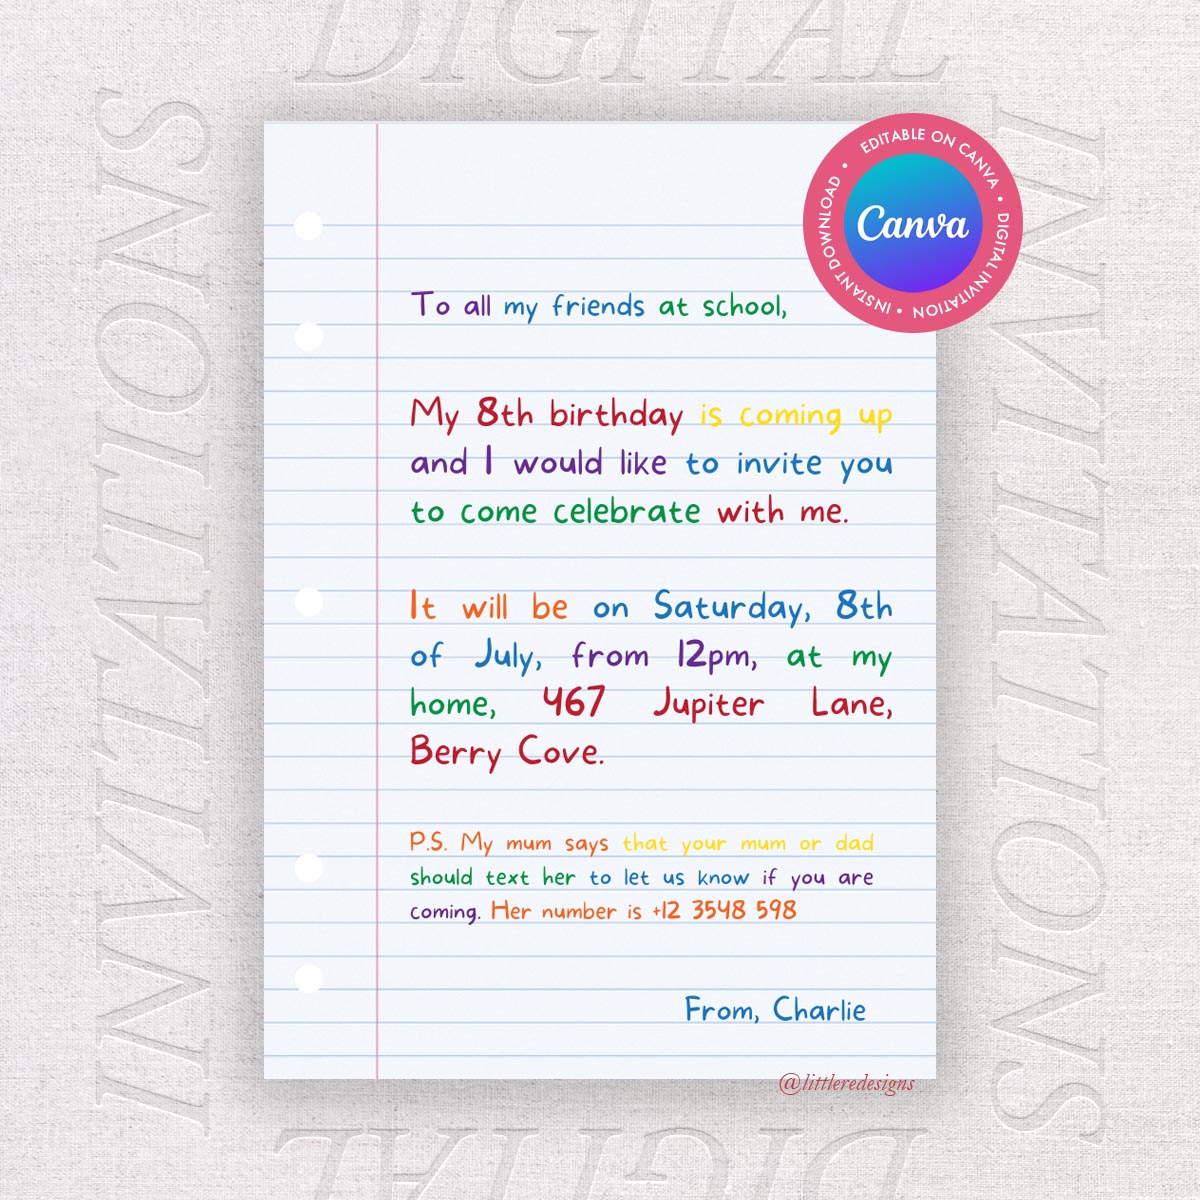 DIGITAL
INVITATIONS
INVITATIONS
DIGITAL
EDITABLE ON CANVA • DIGITAL INVITATION • INSTANT DOWNLOAD •
Canva
To all my friends at school,
My 8th birthday is coming up
and I would like to invite you
to come celebrate with me.
It will be on Saturday, 8th
of July, from 12pm, at my
home, 467 Jupiter Lane,
Berry Cove.
P.S. My mum says that your mum or dad
should text her to let us know if you are
coming. Her number is +12 3548 598
From, Charlie
@littleredesigns